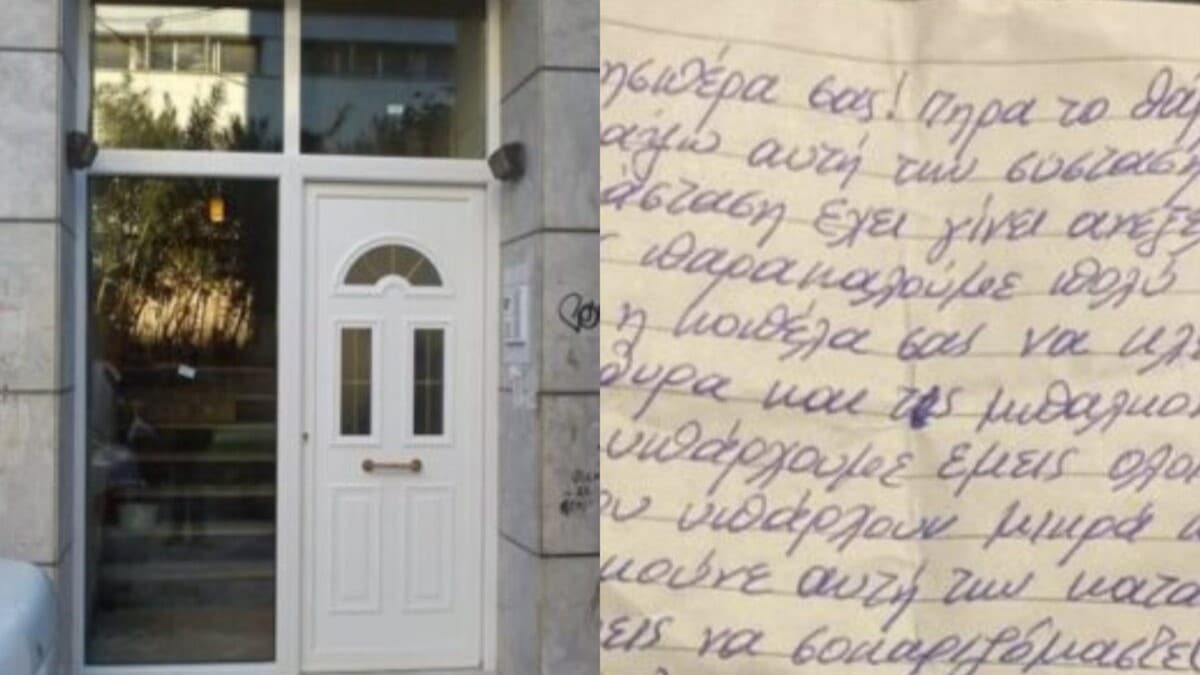 ησπέρα σας! Πήρα το θάρ
άνω αυτή την σύσταση
άσταση έχει γίνει ανεξέ
παρακαλούμε πολύ
η κοπέλα σας να κλε
όυρα και τις μπαλκο
υπάρχουμε εμείς ολοι
ου υπάρχουν μικρά
κούνε αυτή την κατα
εις να σοκαριζόμαστε